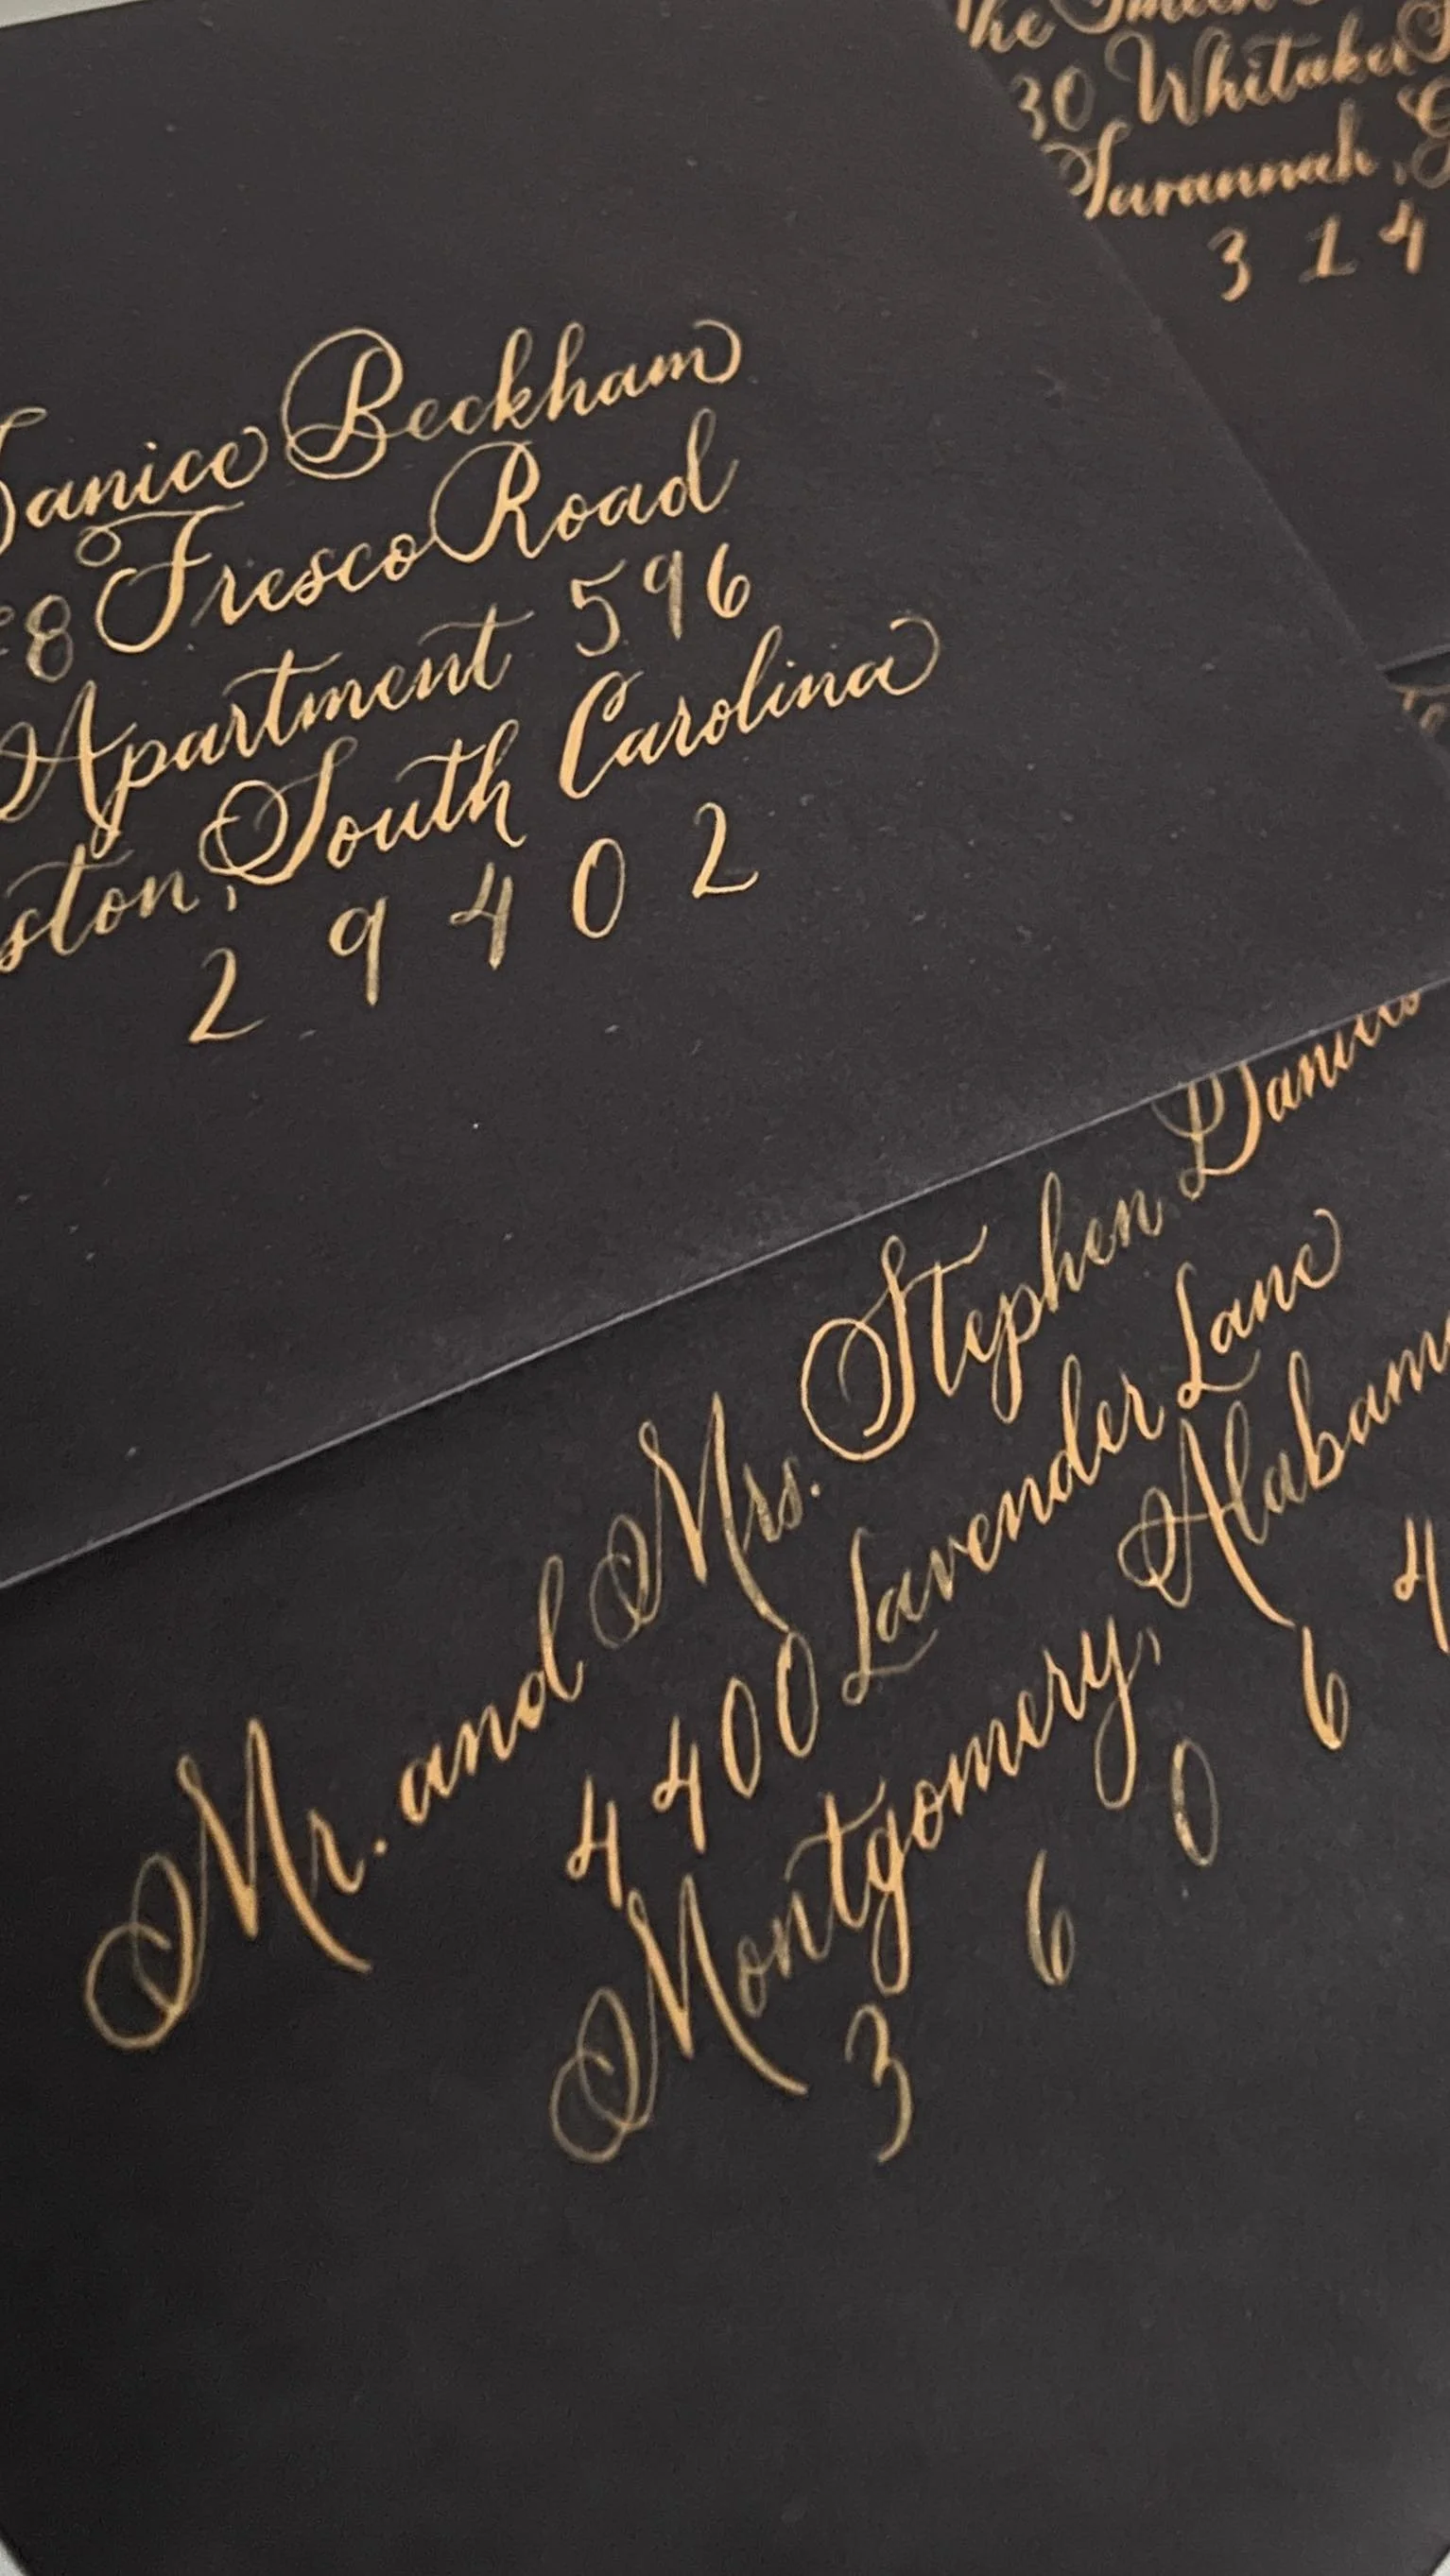 The Smith
30 Whitaker
Savannah, G
3 1 4
Janice Beckham
8 Fresco Road
Apartment 596
ston, South Carolina
2 9 4 0 2
Mr. and Mrs. Stephen Daniels
4400 Lavender Lane
Montgomery, Alabam
3 6 0 6 4